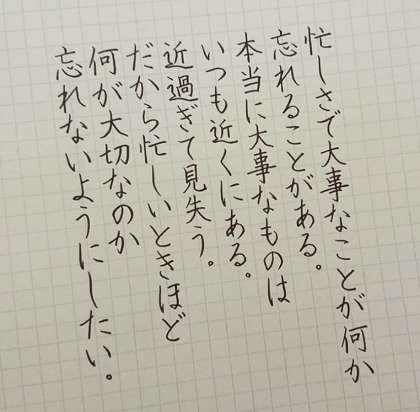 忙しさで大事なことが何か
忘れることがある。
本当に大事なものは
いつも近くにある。
近過ぎて見失う。
だから忙しいときほど
何が大切なのか
忘れないようにしたい。